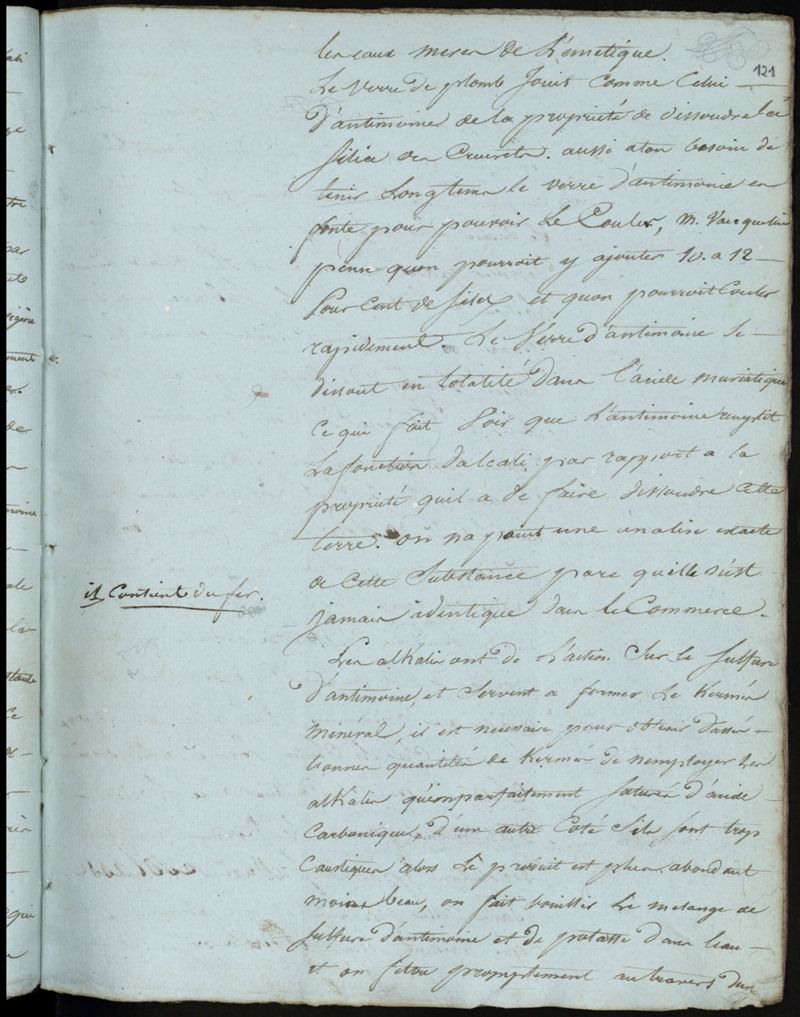 121
les eaux meres de l'émétique.
Le Verre de plomb Jouit Comme Celui
d'antimoine de la propriété de dissoudre la
Silice des Creusets. aussi aton besoin de
tenir Longtems le verre d'antimoine en
fonte pour pouvoir Le Couler, M. Vauquelin
pense quon pourroit y ajouter 10. a 12
Pour Cent de Silex et quon pourroit Couler
rapidement. Le Verre d'antimoine se
dissout en totalité dans l'acide muriatique
Ce qui fait Voir que L'antimoine remplit
La fonction d'alcali par rapport a la
propriété quil a de faire dissoudre Cette
terre. on na point une analise exacte
de Cette Substance parce quelle n'est
jamais identique dans le Commerce.
il Contient du fer.
Les alkalis ont de l'action Sur le Sulfure
d'antimoine, et Servent a former Le Kermès
Minéral, il est nécessaire pour obtenir dassés
bonnes quantités de Kermès de nemployer Les
alkalis qu'imparfaitement Saturés d'acide
Carbonique, d'une autre Coté Sils sont trop
Caustiques alors Le produit est plus abondant
moins beau, on fait bouillir Le mélange de
Sulfure d'antimoine et de potasse dans l'eau
et on filtre promptement au travers d'un